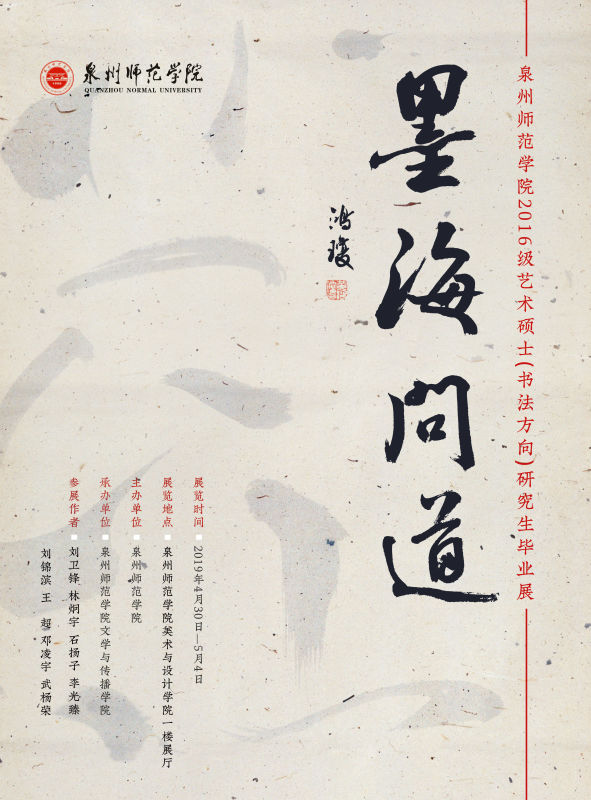 泉州师范学院
QUANZHOU NORMAL UNIVERSITY
泉州师范学院2016级艺术硕士(书法方向)研究生毕业展
墨海問道
鸿琼
展览时间 2019年4月30日—5月4日
展览地点 泉州师范学院美术与设计学院一楼展厅
主办单位 泉州师范学院
承办单位 泉州师范学院文学与传播学院
参展作者 刘卫锋 林炯宇 石扬子 李光臻
刘锦滨 王 超 邓凌宇 武杨荣